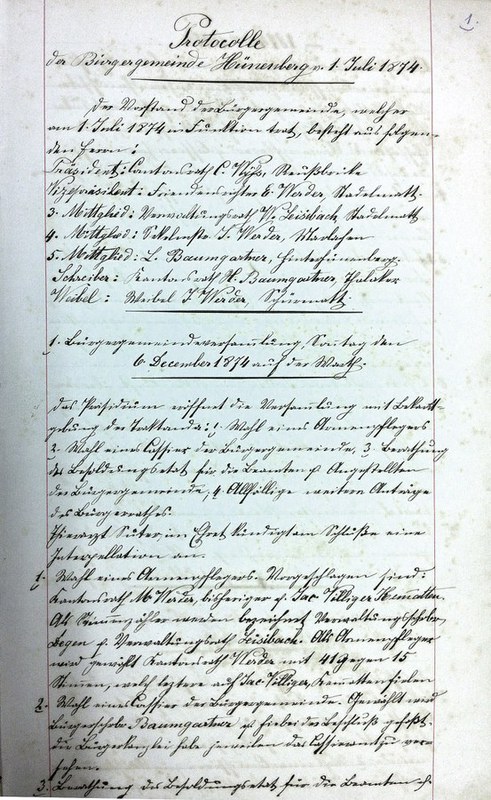 1.
Protocolle
der Bürgergemeinde Hünenberg v. 1. Juli 1874.
Der Vorstand der Bürgergemeinde, welcher
am 1. Juli 1874 in Funktion trat, besteht aus folgen-
den Herrn:
Präsident: Cantonsrath C. Wyss, Reußbrücke
Vizepräsident: Friedensrichter E. Werder, Stadelmatt
3. Mitglied: Verwaltungsrath W. Leisibach, Stadelmatt
4. Mitglied: Sekelmstr J. Werder, Marlachen
5. Mitglied: L. Baumgartner, Hinterhünenberg.
Schreiber: Kantonsrath H. Baumgartner, Thalaker
Weibel: Weibel J. Werder, Schürmatt.
1. Bürgergemeindeversammlung, Sonntag den
6. December 1874 auf der Warth.
Das Präsidium eröffnet die Versamlung mit Bekannt-
gebung der Traktanda: 1. Wahl eines Armenpflegers
2. Wahl eines Cassier der Bürgergemeinde, 3. Berathung
des Besoldungsetat für die Beamten & Angestellten
der Bürgergemeinde, 4. Allfällige weitere Anträge
des Bürgerrathes.
Thierarzt Suter im Ehret kündigt am Schluße eine
Interpellation an.
1. Wahl eines Armenpflegers. Vorgeschlagen sind:
Kantonsrath M. Werder, bisheriger & Jac. Villiger Kematten.
Als Stimmenzähler werden bezeichnet Verwaltungsschrbr.
& Verwaltungsrath Leisibach. Als Armenpfleger
wird gewählt Kantonsrath Werder mit 41 gegen 15
Stimen, welch leztere auf Jac. Villiger, Kematten fielen
2. Wahl eines Cassier der Bürgergemeinde. Gewählt wird
Bürgerschrbr. Baumgartner & hiebei der Beschluß gefaßt,
die Bürgerkanzlei habe jeweilen das Cassieramt zu ver-
sehen.
3. Berathung des Besoldungsetat für die Beamten &